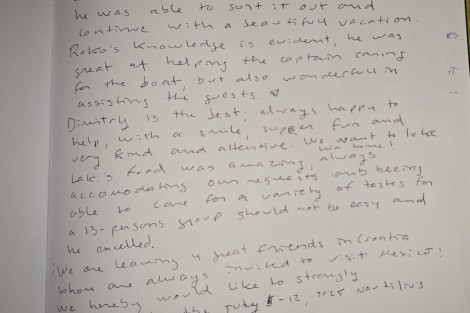 he was able to sort it out and
continue with a beautifull vacation.
Roko's knowledge is evident, he was
great at helping the captain caring
for the boat, but also wonderfull in
assisting the guests.
Dimitriy is the best, always happy to
help, with a smile, super fun and
very kind and attentive. We want to take
him home!
Luk's food was amazing, always
accomodating our requests and beeing
able to care for a variety of tastes for
a 13-persons group should not be easy and
he excelled.
We are leaving 4 great friends in Croatia
whom are always invited to visit Mexico!
We hereby would like to strongly
the July 5-12, 2025 Nautilus